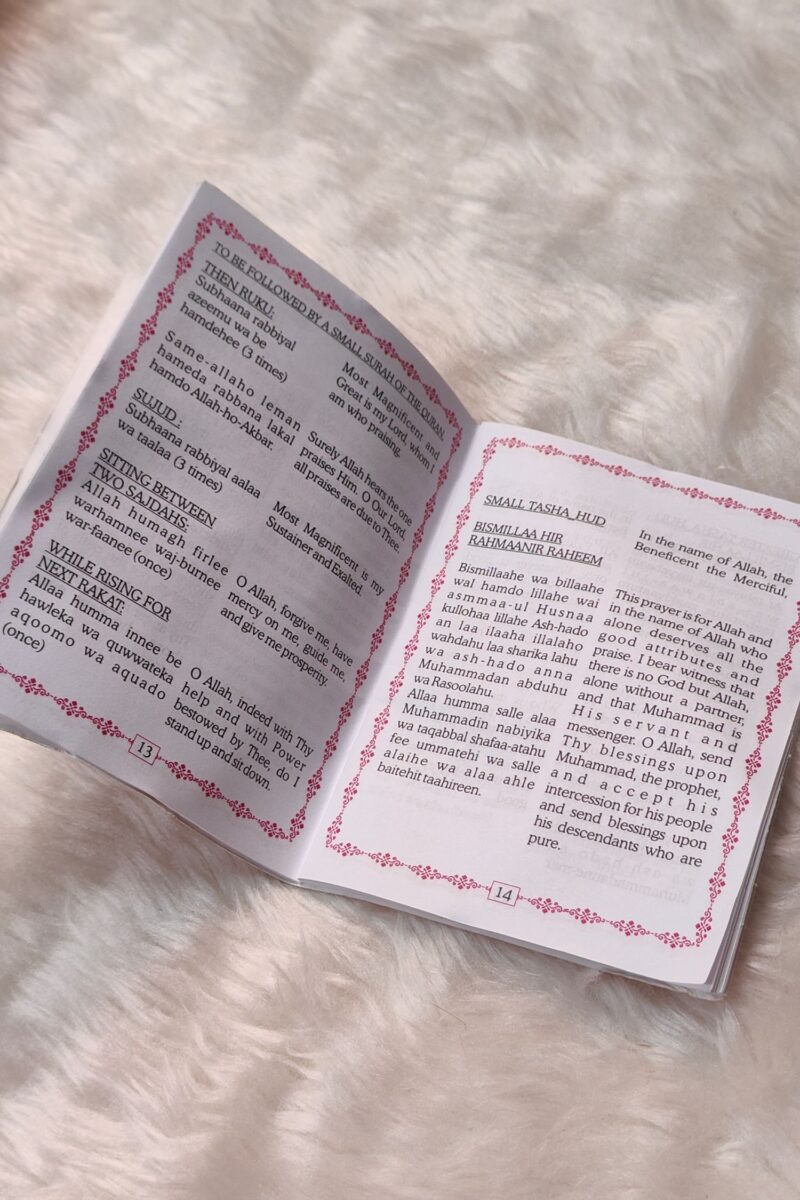 TO BE FOLLOWED BY A SMALL SURAH OF THE QURAN.
THEN RUKU:
Subhaana rabbiyal
azeemu wa be
hamdehee (3 times)
Most Magnificent and
Great is my Lord, whom I
am who praising.
Same-allaho leman
hameda rabbana lakal
hamdo Allah-ho-Akbar.
Surely Allah hears the one
praises Him. O Our Lord,
all praises are due to Thee.
SUJUD :
Subhaana rabbiyal aalaa
wa taalaa (3 times)
Most Magnificent is my
Sustainer and Exalted.
SITTING BETWEEN
TWO SAJDAHS:
Allah humagh firlee
warhamnee waj-burnee
war-faanee (once)
O Allah, forgive me, have
mercy on me, guide me,
and give me prosperity.
WHILE RISING FOR
NEXT RAKAT:
Allaa humma innee be
hawleka wa quwwateka
aqoomo wa aquado
(once)
O Allah, indeed with Thy
help and with Power
bestowed by Thee, do I
stand up and sit down.
13
SMALL TASHA_HUD
BISMILLAA HIR
RAHMAANIR RAHEEM
In the name of Allah, the
Beneficent the Merciful,
Bismillaahe wa billaahe
wal hamdo lillahe wai
asmmaa-ul Husnaa
kullohaa lillahe Ash-hado
an laa ilaaha illalaho
wahdahu laa sharika lahu
wa ash-hado anna
Muhammadan abduhu
wa Rasoolahu.
Allaa humma salle alaa
Muhammadin nabiyika
wa taqabbal shafaa-atahu
fee ummatehi wa salle
alaihe wa alaa ahle
baitehit taahireen.
This prayer is for Allah and
in the name of Allah who
alone deserves all the
good attributes and
praise. I bear witness that
there is no God but Allah,
alone without a partner,
and that Muhammad is
His servant and
messenger. O Allah, send
Thy blessings upon
Muhammad, the prophet,
and accept his
intercession for his people
and send blessings upon
his descendants who are
pure.
14